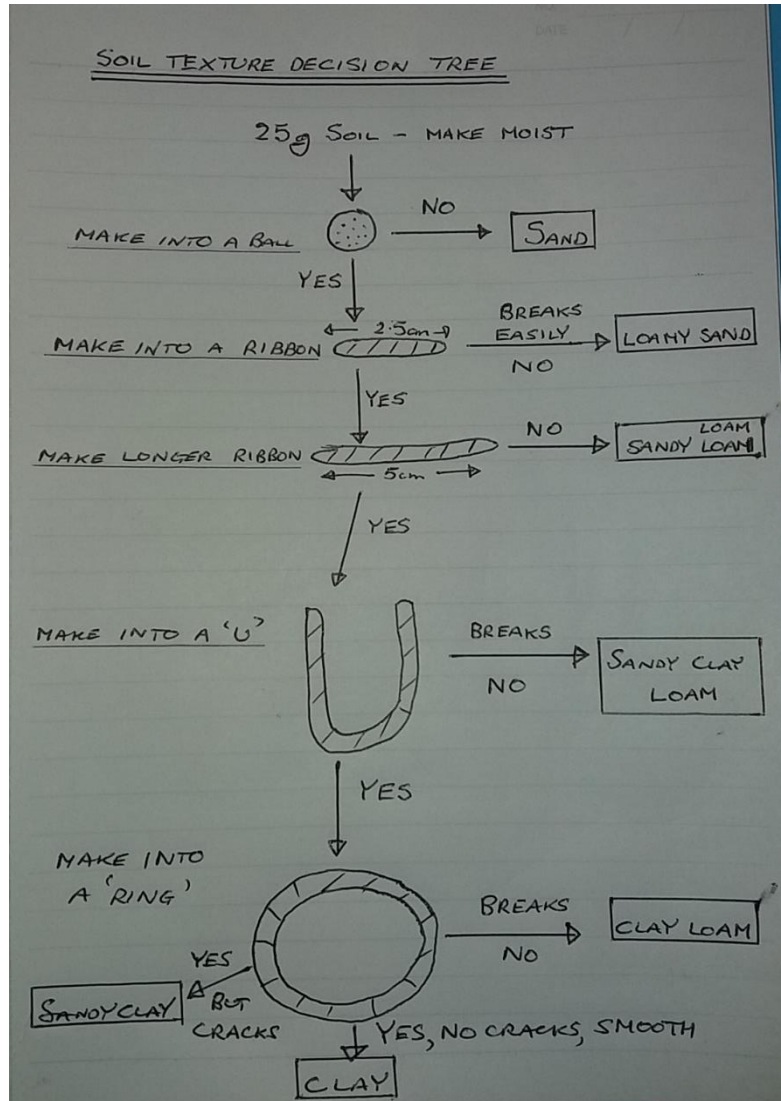 DATE
SOIL TEXTURE DECISION TREE
25g SOIL - MAKE MOIST
MAKE INTO A BALL
NO
SAND
YES
MAKE INTO A RIBBON
2.5cm
BREAKS
EASILY
NO
LOAMY SAND
YES
MAKE LONGER RIBBON
5cm
NO
LOAM
SANDY LOAM
YES
MAKE INTO A 'U'
BREAKS
NO
SANDY CLAY
LOAM
YES
MAKE INTO
A 'RING'
BREAKS
NO
CLAY LOAM
YES
BUT
CRACKS
SANDY CLAY
YES, NO CRACKS, SMOOTH
CLAY